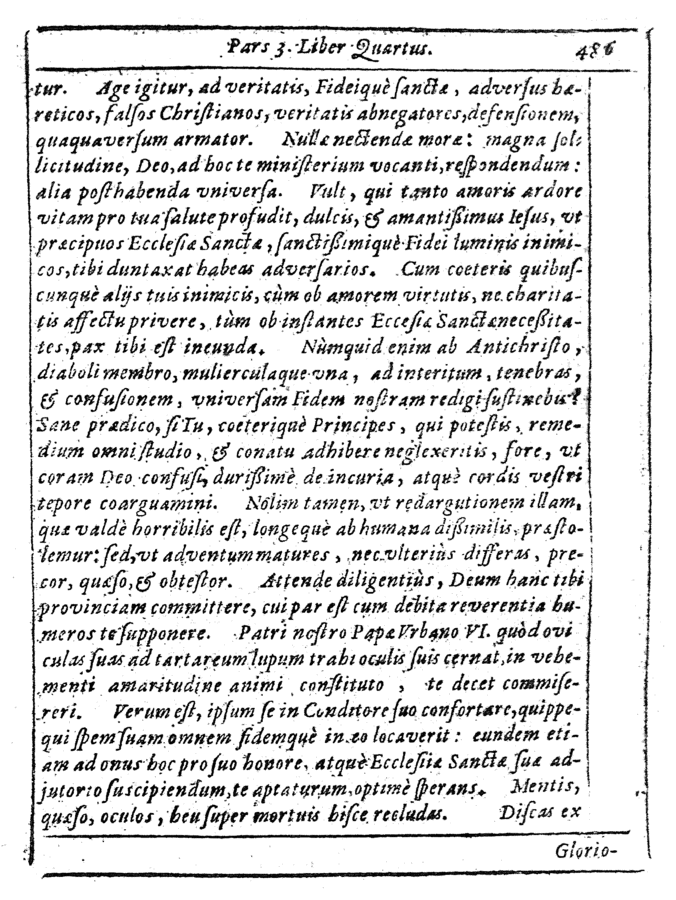 Pars 3. Liber Quartus. 486
tur. Age igitur, ad veritatis, Fideiquè ſanctæ, adverſus hæ-
reticos, falſos Chriſtianos, veritatis abnegatores, defenſionem,
quaquaverſum armator. Nullæ nectendæ moræ: magna ſol-
licitudine, Deo, ad hoc te miniſterium vocanti, reſpondendum:
alia poſthabenda vniverſa. Vult, qui tanto amoris ardore
vitam pro tua ſalute profudit, dulcis, & amantißimus Ieſus, vt
præcipuos Eccleſiæ Sanctæ, ſanctißimiquè Fidei luminis inimi-
cos, tibi duntaxat habeas adverſarios. Cum coeteris quibuſ-
cunquè alijs tuis inimicis, cùm ob amorem virtutis, ne charita-
tis affectu privere, tùm ob inſtantes Ecceſiæ Sanctæ neceßita-
tes, pax tibi eſt ineunda. Nùmquid enim ab Antichriſto,
diaboli membro, mulierculaque vna, ad interitum, tenebras,
& confuſionem, vniverſam Fidem noſtram redigi ſuſtinebis?
Sane prædico, ſi Tu, coeteriquè Principes, qui poteſtis, reme-
dium omni ſtudio, & conatu adhibere neglexeritis, fore, vt
coram Deo confuſi, durißimè de incuria, atquè cordis veſtri
tepore coarguamini. Nolim tamen, vt redargutionem illam,
quæ valdè horribilis eſt, longequè ab humana dißimilis, præſto-
lemur: ſed, vt adventum matures, nec vlteriùs differas, pre-
cor, quæſo, & obteſtor. Attende diligentiùs, Deum hanc tibi
provinciam committere, cui par eſt cum debita reverentia hu-
meros te ſupponere. Patri noſtro Papæ Vrbano VI. quòd ovi
culas ſuas ad tartareum lupum trahi oculis ſuis cernat, in vehe-
menti amaritudine animi conſtituto, te decet commiſe-
reri. Verum eſt, ipſum ſe in Conditore ſuo confortare, quippe-
qui ſpem ſuam omnem fidemquè in eo locaverit: eundem eti-
am ad onus hoc pro ſuo honore, atquè Eccleſiiæ Sanctæ ſuæ ad-
jutorio ſuscipiendum, te aptaturum, optimè ſperans. Mentis,
quæſo, oculos, heu ſuper mortuis hiſce recludas. Diſcas ex
Glorio-